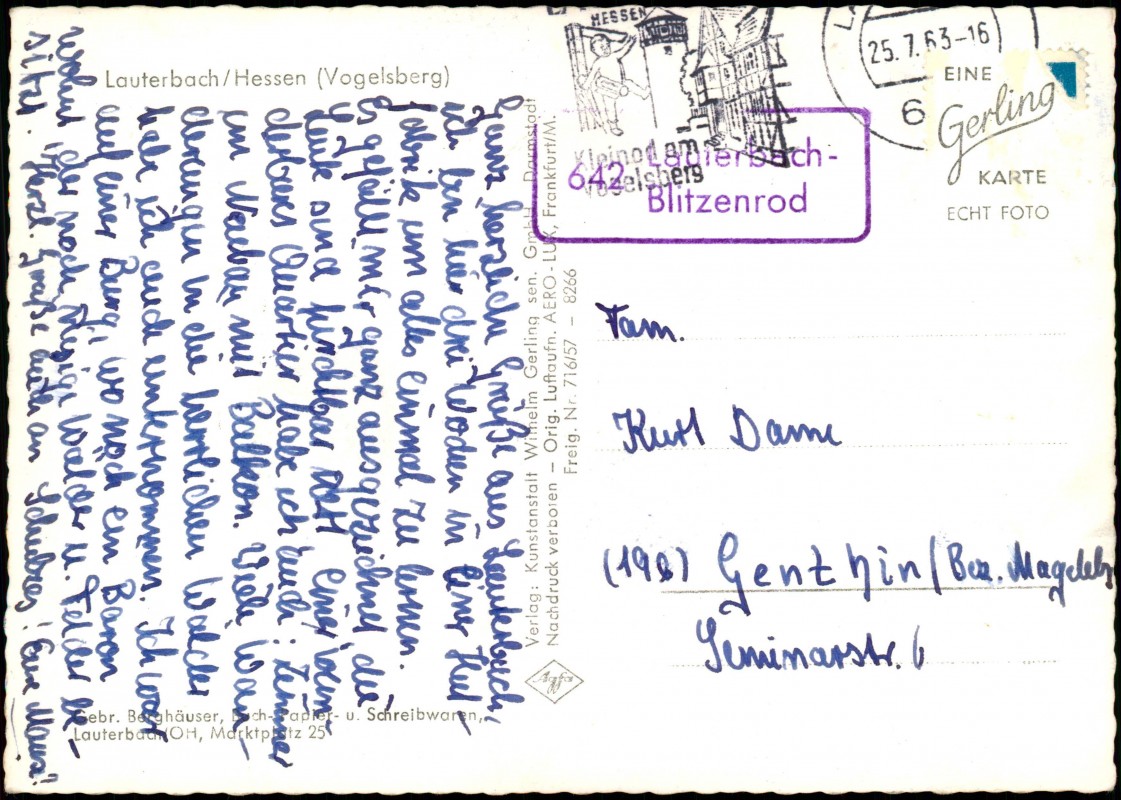 Lauterbach/Hessen (Vogelsberg)
Ganz herzliche Grüße aus Lauterbach,
ich bin hier drei Wochen in einer Hut-
fabrik um alles einmal zu lernen.
Es gefällt mir ganz ausgezeichnet die
Leute sind furchtbar nett. Ein
sauberes Quartier habe ich auch: Zimmer
im Neubau mit Balkon. Viele Wan-
derungen in die herrlichen Wälder
habe ich auch unternommen. Ich war
auf einer Burg, wo noch ein Baron
wohnt der noch riesige Wälder u. Felder be-
sitzt. Herzl. Grüße auch an Eure
Gebr. Berghäuser, Buch- Papier- u. Schreibwaren,
Lauterbach/OH, Marktplatz 25
Verlag: Kunstanstalt Wilhelm Gerling sen. GmbH. Darmstadt
Nachdruck verboten – Orig. Luftaufn. AERO-LUX, Frankfurt/M.
Freig. Nr. 716/57 – 8266
Agfa
HESSEN
Kleinod am
Vogelsberg
25.7.63-16
6
642 Lauterbach-
Blitzenrod
EINE
Gerling
KARTE
ECHT FOTO
Fam.
Kurt Dame
Genthin/Bez. Magdeb
Seminarstr. 6